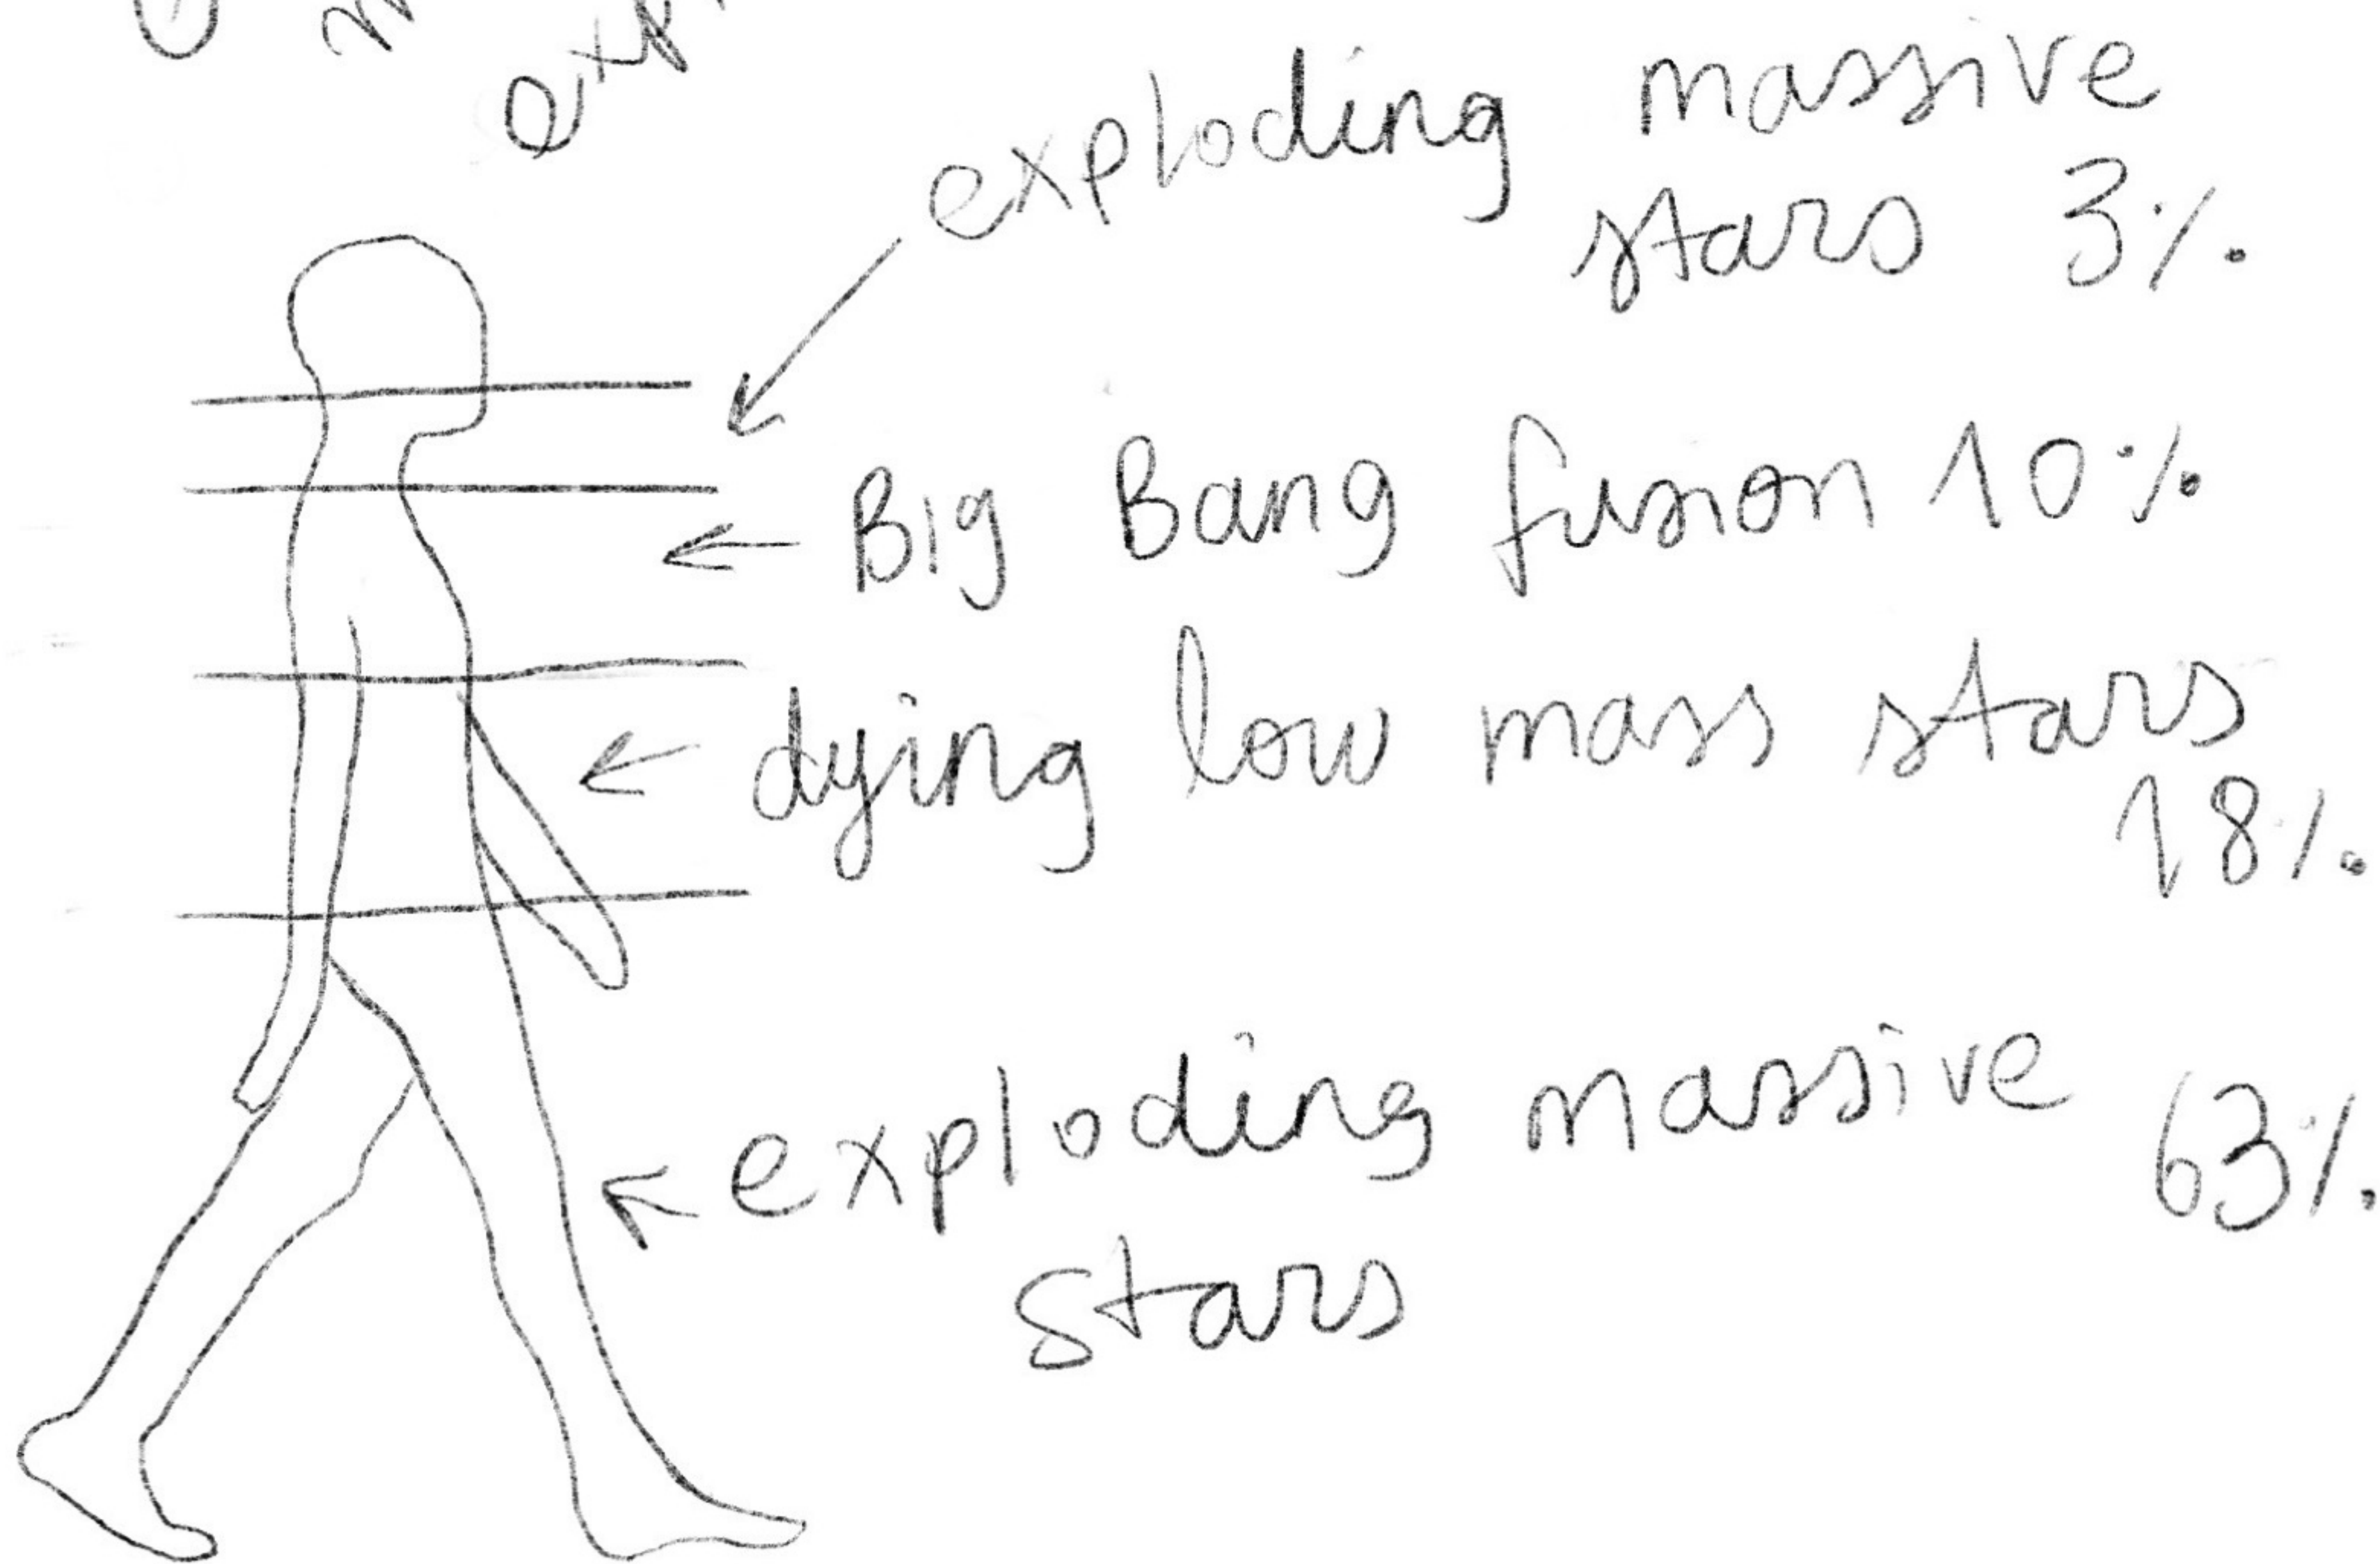 exploding massive
stars 3%
Big Bang fusion 10%
dying low mass stars
18%
exploding massive 63%
stars